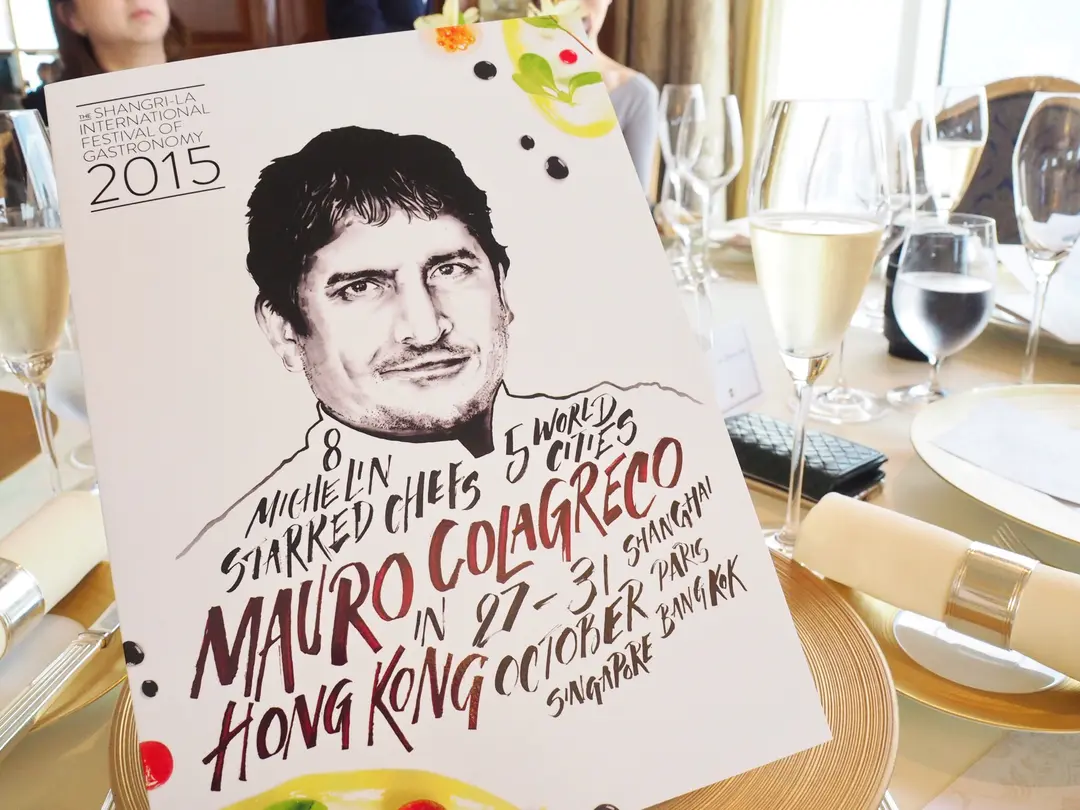 THE SHANGRI-LA
INTERNATIONAL
FESTIVAL OF
GASTRONOMY
2015
8
MICHELIN
STARRED CHEFS
5 WORLD
CITIES
MAURO COLAGRECO
IN 27-31 SHANGHAI
HONG KONG OCTOBER PARIS
SINGAPORE BANGKOK